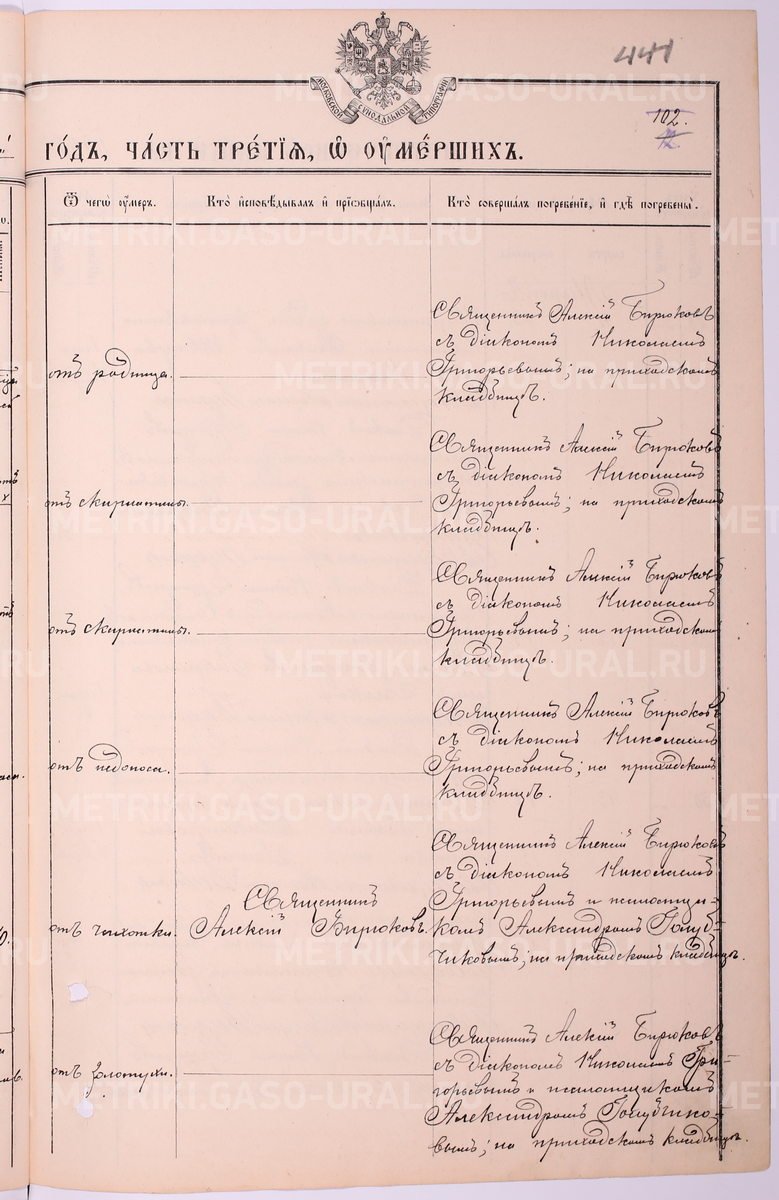 441
МОСКОВСКОЙ СѴНОДАЛЬНОЙ ТИПОГРАФІИ
102.
го́дъ, ча́сть тре́тїѧ, ѡ҆ ᲂу҆ме́ршихъ.
Ѿ чегѡ̀ ᲂу҆́меръ.
Кто̀ и҆сповѣ́дывалъ и҆ прїѡбща́лъ.
Кто̀ соверша́лъ погребе́нїе, и҆ гдѣ̀ погребены̀.
Священникъ Алексій Бирюковъ
съ діакономъ Николаемъ
отъ родимца.
Григорьевымъ; на приходскомъ
кладбищѣ.
Священникъ Алексій Бирюковъ
съ діакономъ Николаемъ
отъ скарлатины.
Григорьевымъ; на приходскомъ
кладбищѣ.
Священникъ Алексій Бирюковъ
съ діакономъ Николаемъ
отъ скарлатины.
Григорьевымъ; на приходскомъ
кладбищѣ.
Священникъ Алексій Бирюковъ
съ діакономъ Николаемъ
отъ поноса.
Григорьевымъ; на приходскомъ
кладбищѣ.
отъ чахотки.
Священникъ
Алексій Бирюковъ.
Священникъ Алексій Бирюковъ
съ діакономъ Николаемъ
Григорьевымъ и псаломщи-
комъ Александромъ Голуб-
чиковымъ; на приходскомъ кладбищѣ.
отъ золотухи.
Священникъ Алексій Бирюковъ
съ діакономъ Николаемъ Гри-
горьевымъ и псаломщикомъ
Александромъ Голубчико-
вымъ; на приходскомъ кладбищѣ.
METRIKI.GASO-URAL.RU